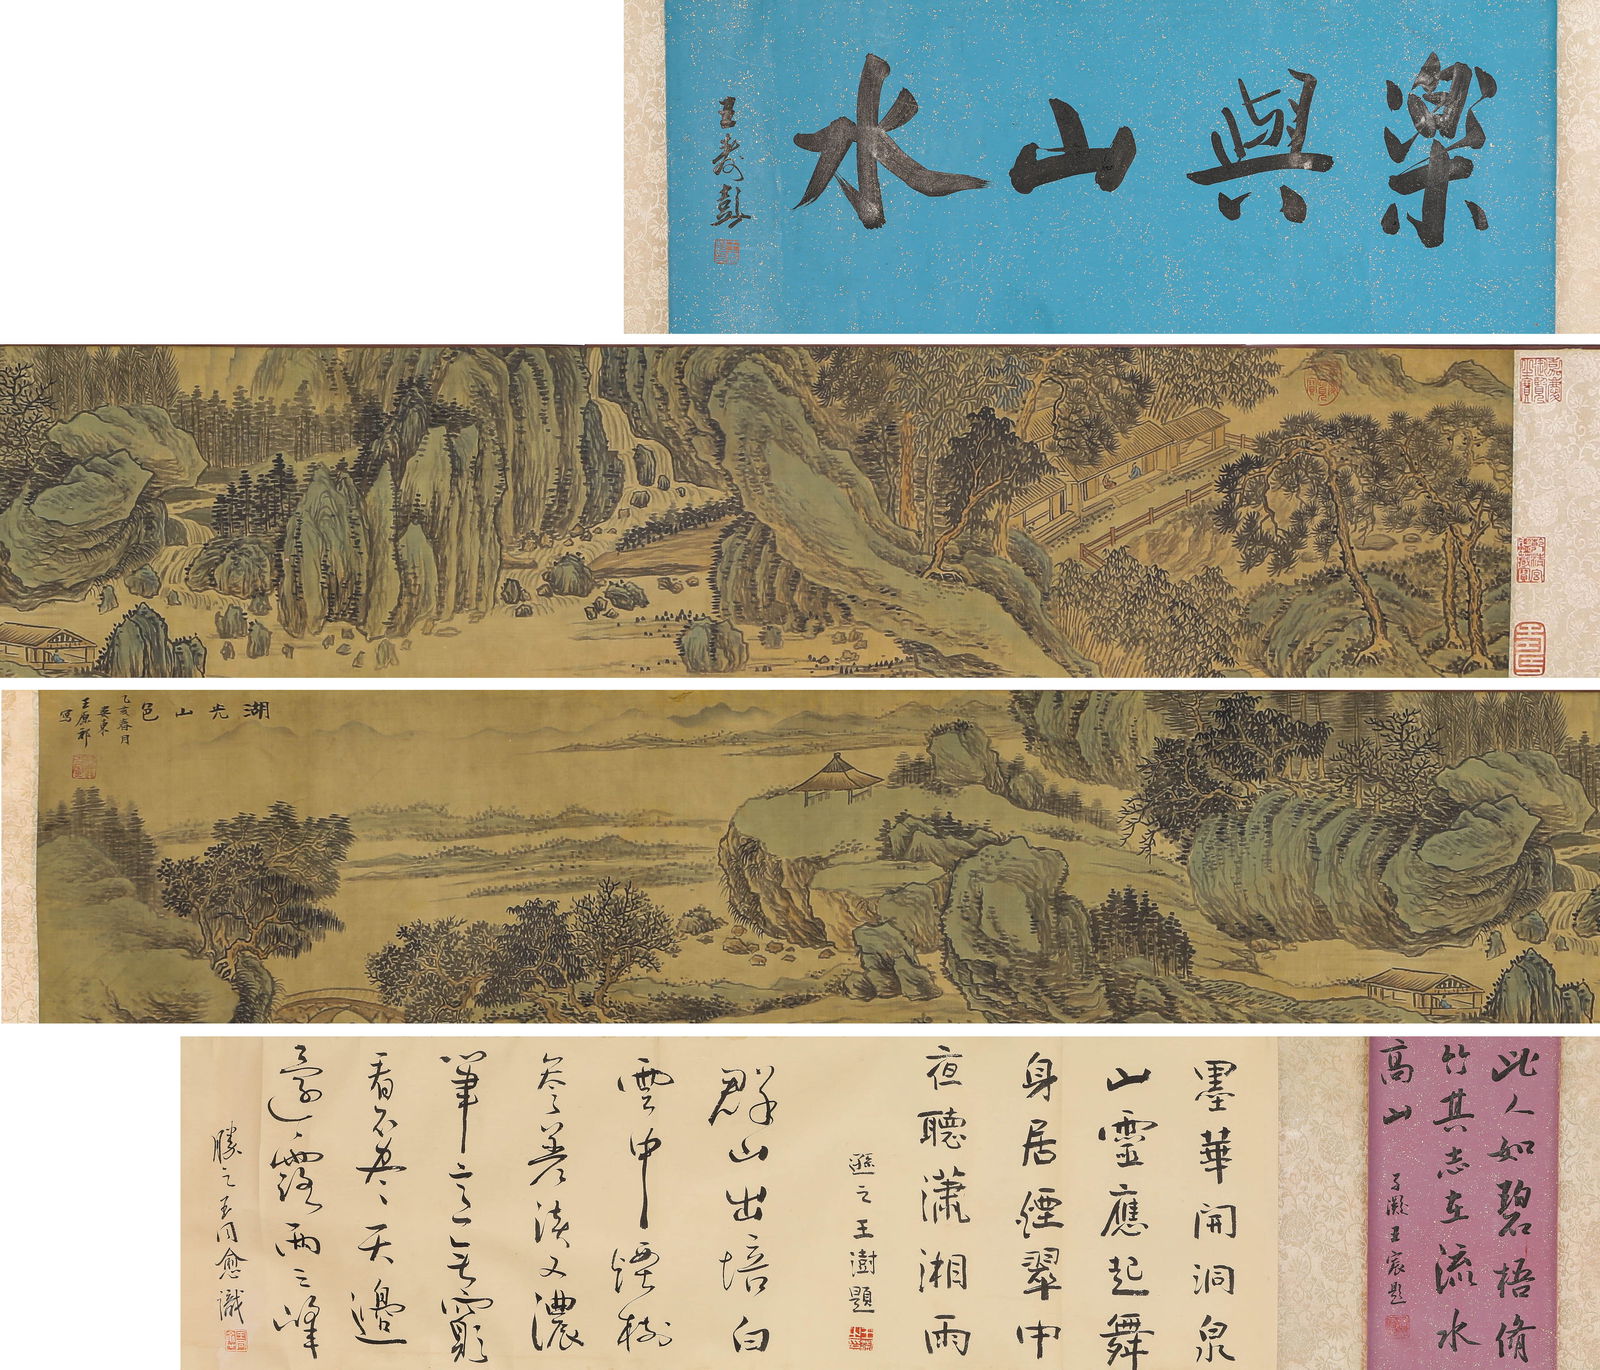 樂與山水
王壽彭
嘉慶御覽之寶
湖光山色
乙亥春月
婁東
王原祁
寫
此人如碧梧脩
竹其志在流水
高山
子凝王宸題
墨華開洞泉
山靈應起舞
身居煙翠中
夜聽瀟湘雨
遜之王澍題
群山出培白
雲中煙樹
参差淡又濃
筆意無窮
看不盡天邊
還露兩三峰
勝之王同愈識